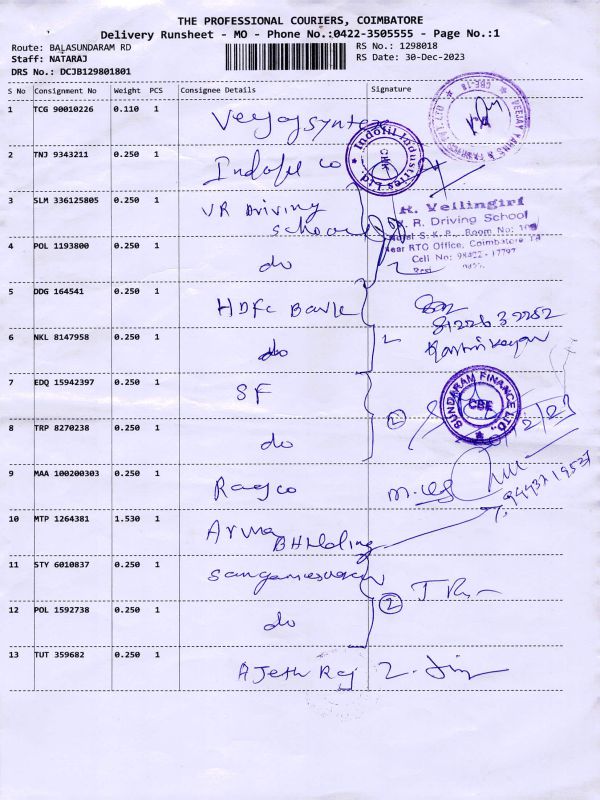 THE PROFESSIONAL COURIERS, COIMBATORE
Delivery Runsheet - MO - Phone No.:0422-3505555 - Page No.:1
Route: BALASUNDARAM RD
RS No.: 1298018
Staff: NATARAJ
RS Date: 30-Dec-2023
DRS No.: DCJB129801801
S No Consignment No Weight PCS Consignee Details Signature
1 TCG 90010226 0.110 1
VEEJAY YARNS & FABRICS PVT LTD
2 TNJ 9343211 0.250 1 Indofil co
Indofil Industries Ltd.
3 SLM 336125805 0.250 1 VR Driving
School
R. Vellingiri
V. R. Driving School
Near RTO Office, Coimbatore
Cell No: 98422 - 17797
4 POL 1193800 0.250 1 do
5 DDG 164541 0.250 1 HDFC Bank
6 NKL 8147958 0.250 1 do
7 EDQ 15942397 0.250 1 SF
SUNDARAM FINANCE LTD.,
CBE
8 TRP 8270238 0.250 1 do
2
9 MAA 100200303 0.250 1
10 MTP 1264381 1.530 1
11 STY 6010837 0.250 1
2
12 POL 1592738 0.250 1 do
13 TUT 359682 0.250 1 AJeth Raj